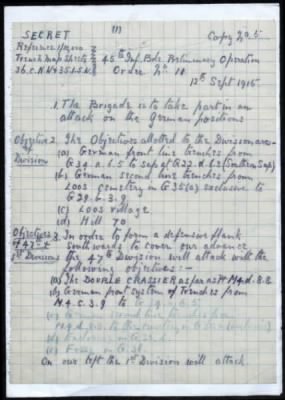 SECRET (1) Copy No. 5
Reference from
Trench Map Sheets
36.C.N.W.3 & 1. S.W.
45th Inf. Bde. Preliminary Operation
Order No. 18
12th Sept 1915
1. The Brigade is to take part in an
attack on the German positions
Objective of Division
2. The Objectives allotted to the Division are:-
(a) German front line trenches from
to Sap at (Southern Sap)
(b) German second line trenches from
LOOS cemetery in G35(a) exclusive to
G29.b.3.9
(c) LOOS village
(d) Hill 70
Objectives of 47th & 1st Divisions
3. In order to form a defensive flank
southwards to cover our advance
the 47th Division will attack with the
following objectives:-
(a) The DOUBLE CRASSIER as far as M4d.8.8
(b) German front system of Trenches from
M.4.C.3.9 to
(c) German second line trenches from
to the cemetery
(d)
(e)
On our left the 1st Division will attack